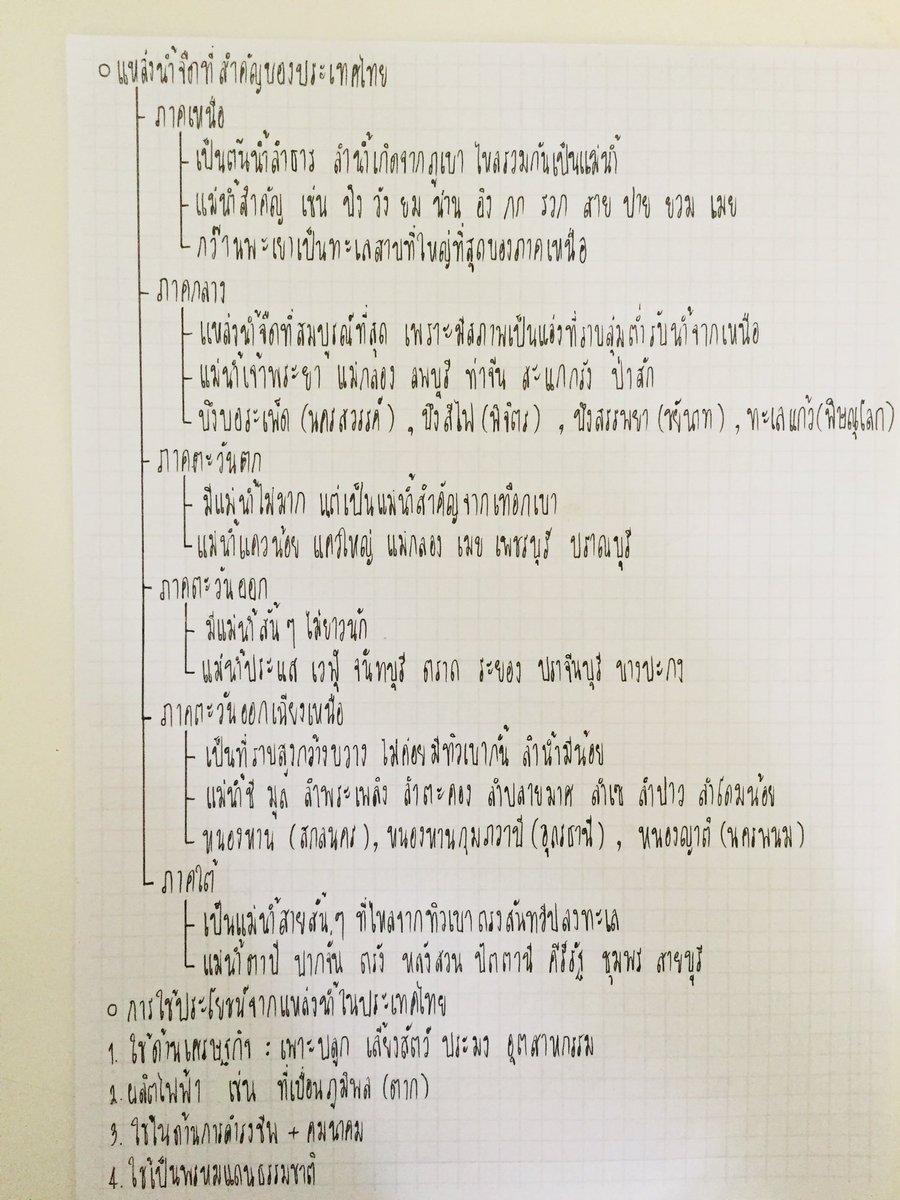 ○ แหล่งน้ำจืดที่สำคัญของประเทศไทย
ภาคเหนือ
เป็นต้นน้ำลำธาร ลำน้ำเกิดจากภูเขา ไหลรวมกันเป็นแม่น้ำ
แม่น้ำสำคัญ เช่น ปิง วัง ยม น่าน อิง กก รวก สาย ปาย ยวม เมย
กว๊านพะเยาเป็นทะเลสาบที่ใหญ่ที่สุดของภาคเหนือ
ภาคกลาง
แหล่งน้ำจืดที่สมบูรณ์ที่สุด เพราะมีสภาพเป็นแอ่งที่ราบลุ่มต่ำรับน้ำจากเหนือ
แม่น้ำเจ้าพระยา แม่กลอง ลพบุรี ท่าจีน สะแกกรัง ป่าสัก
บึงบอระเพ็ด (นครสวรรค์) , บึงสีไฟ (พิจิตร) , บึงสรรพยา (ชัยนาท) , ทะเลแก้ว (พิษณุโลก)
ภาคตะวันตก
มีแม่น้ำไม่มาก แต่เป็นแม่น้ำสำคัญจากเทือกเขา
แม่น้ำแควน้อย แควใหญ่ แม่กลอง เมย เพชรบุรี ปราณบุรี
ภาคตะวันออก
มีแม่น้ำสั้นๆ ไม่ยาวนัก
แม่น้ำประแส เวฬุ จันทบุรี ตราด ระยอง ปราจีนบุรี บางปะกง
ภาคตะวันออกเฉียงเหนือ
เป็นที่ราบสูงกว้างขวาง ไม่ค่อยมีทิวเขากั้น ลำน้ำมีน้อย
แม่น้ำชี มูล ลำพระเพลิง ลำตะคอง ลำปลายมาศ ลำเซ ลำปาว ลำโดมน้อย
หนองหาน (สกลนคร), หนองหานกุมภวาปี (อุดรธานี) , หนองญาติ (นครพนม)
ภาคใต้
เป็นแม่น้ำสายสั้นๆ ที่ไหลจากทิวเขาตรงสันทวีปลงทะเล
แม่น้ำตาปี ปากจั่น ตรัง หลังสวน ปัตตานี คีรีรัฐ ชุมพร สายบุรี
○ การใช้ประโยชน์จากแหล่งน้ำในประเทศไทย
1. ใช้ด้านเศรษฐกิจ : เพาะปลูก เลี้ยงสัตว์ ประมง อุตสาหกรรม
2. ผลิตไฟฟ้า เช่น ที่เขื่อนภูมิพล (ตาก)
3. ใช้ในด้านการดำรงชีพ + คมนาคม
4. ใช้เป็นพรหมแดนธรรมชาติ